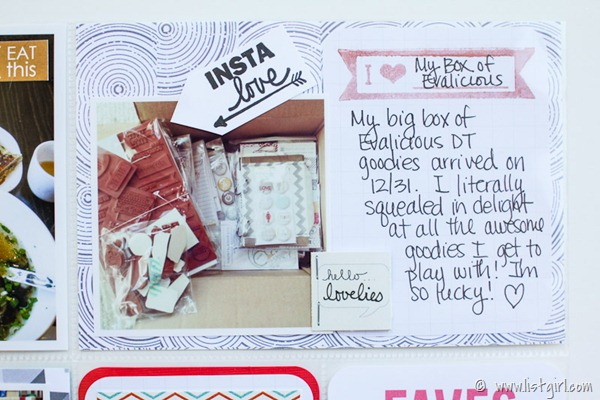 EAT
this
INSTA
love
I ♥ My Box of
Evalicious
My big box of
Evalicious DT
goodies arrived on
12/31. I literally
squealed in delight
at all the awesome
goodies I get to
play with! I'm
so lucky! ♡
hello
lovelies
FAVES
© www.listgirl.com